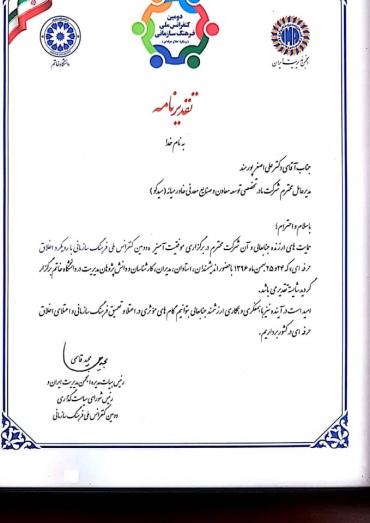 دومین
کنفرانس ملی
فرهنگ سازمانی
دانشگاه خاتم
انجمن مدیریت ایران
تقدیرنامه
به نام خدا
جناب آقای دکتر علی اصغر پورمند
مدیرعامل محترم شرکت مادر تخصصی توسعه معادن و صنایع معدنی خاورمیانه (میدکو)
با سلام و احترام؛
حمایت های ارزنده جنابعالی و آن شرکت محترم در برگزاری موفقیت آمیز «دومین کنفرانس ملی فرهنگ سازمانی با رویکرد اخلاق
حرفه ای» که ۲۴ و ۲۵ بهمن ماه ۱۳۹۶ با حضور اندیشمندان، استادان، مدیران، کارشناسان و دانش پژوهان مدیریت در دانشگاه خاتم برگزار
گردید شایسته تقدیر می باشد.
امید است در آینده نیز با همفکری و همکاری ارزشمند جنابعالی بتوانیم گام های مؤثری در اعتلا و تعمیق فرهنگ سازمانی و اعتلای اخلاق
حرفه ای در کشور برداریم.
مجید قاسمی
رئیس هیات مدیره انجمن مدیریت ایران و
رئیس شورای سیاست گذاری
دومین کنفرانس ملی فرهنگ سازمانی